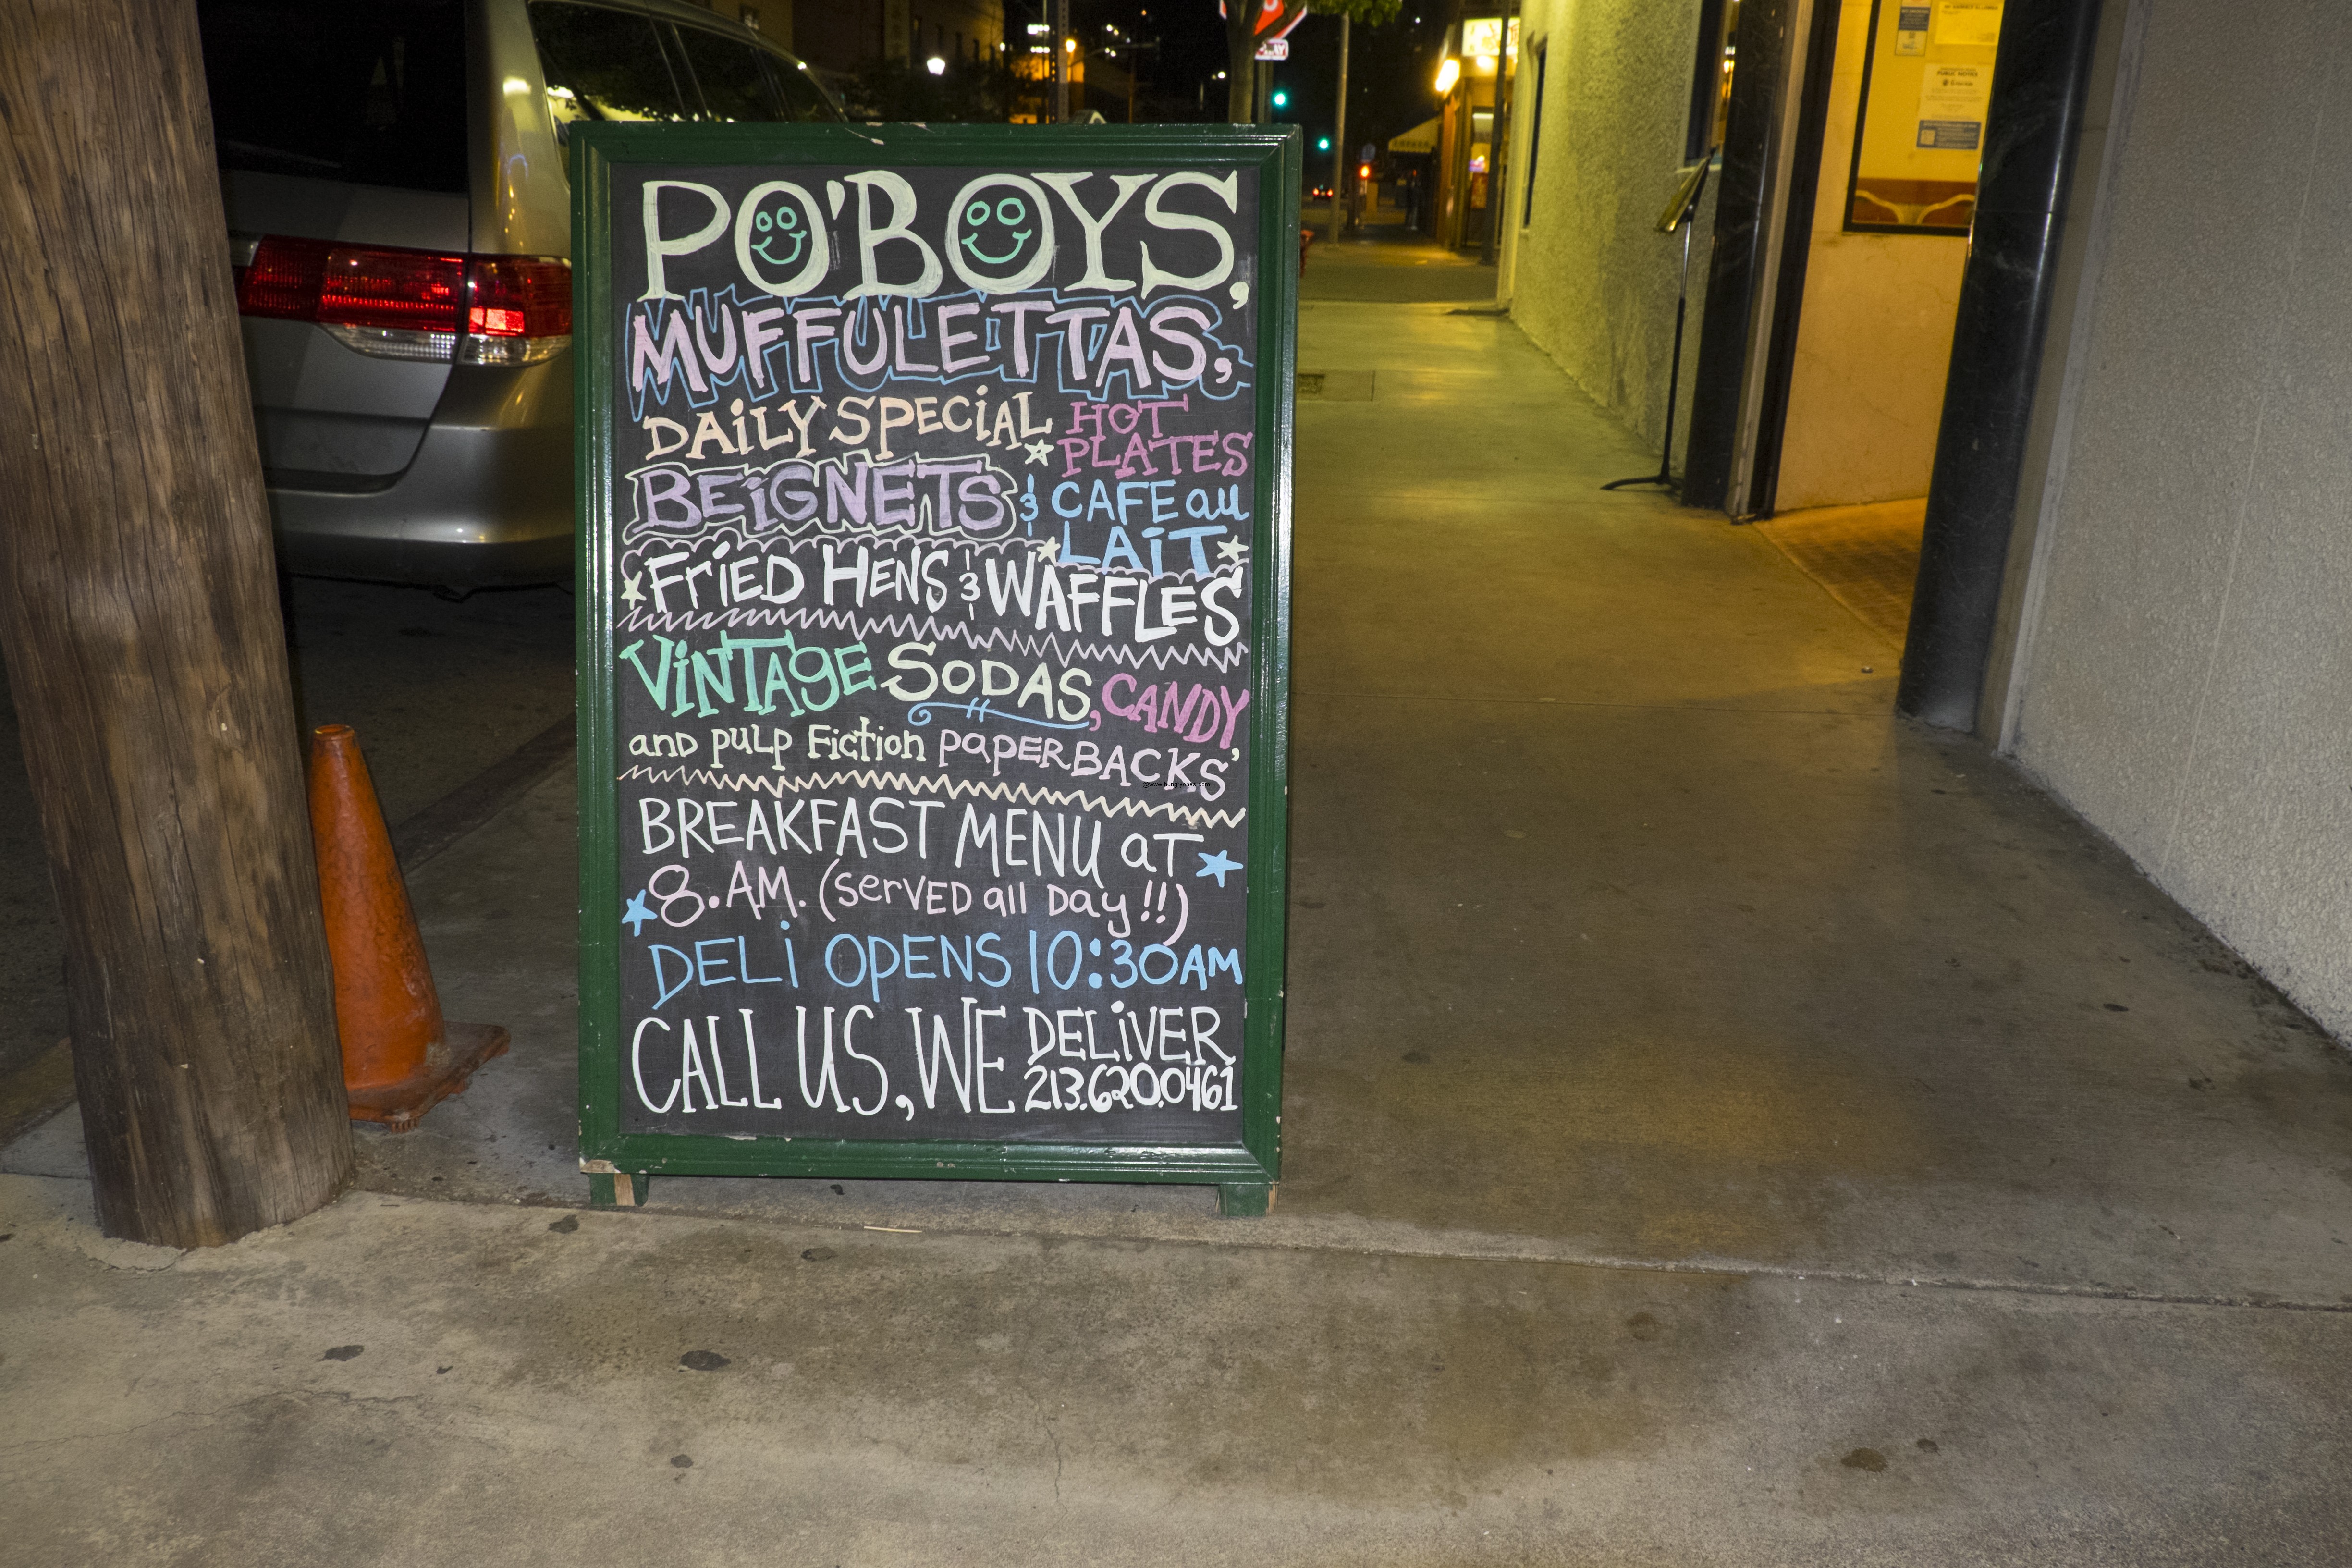 PO'BOYS,
MUFFULETTAS,
DAiLY SPECiAL HOT
PLATES
BEiGNETS & CAFE au
LAiT
FriED HENS & WAFFLES
ViNTAgE SODAS, CANDY,
and pulp Fiction paperBACKS
BREAKFAST MENU aT
8.AM. (SerVED all Day!!)
DELi OPENS 10:30AM
CALL US, WE DELiVER
213.620.0461
PUBLIC NOTICE